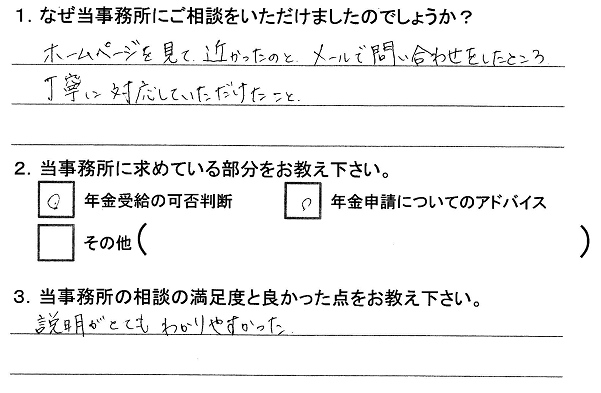 1. なぜ当事務所にご相談をいただけましたのでしょうか？
ホームページを見て、近かったのと、メールで問い合わせをしたところ
丁寧に対応していただけたこと。
2. 当事務所に求めている部分をお教え下さい。
○ 年金受給の可否判断 ○ 年金申請についてのアドバイス
その他（ ）
3. 当事務所の相談の満足度と良かった点をお教え下さい。
説明がとてもわかりやすかった。